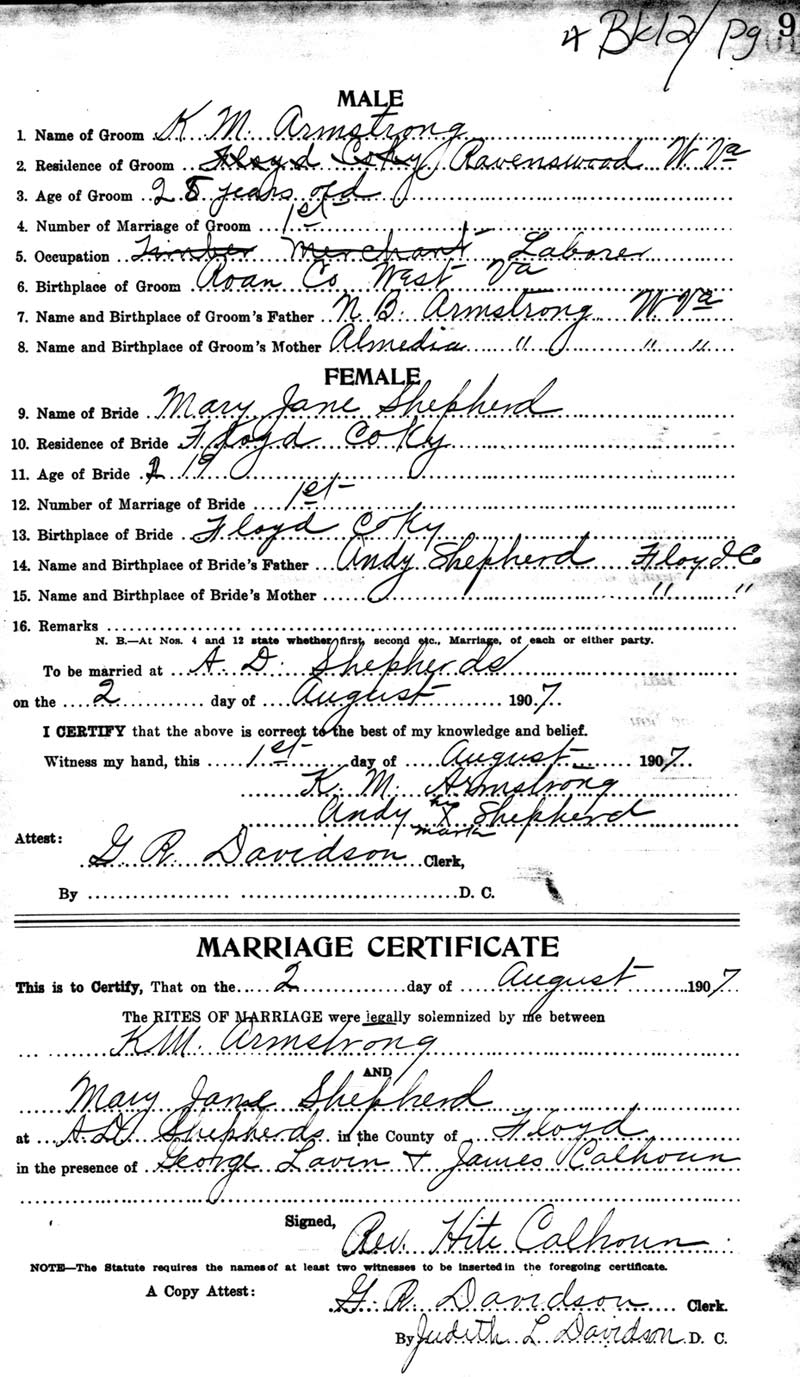 4 Bk12/ Pg 9
MALE
1. Name of Groom K. M. Armstrong
2. Residence of Groom Floyd Co Ky Ravenswood W Va
3. Age of Groom 28 years old
4. Number of Marriage of Groom 1st
5. Occupation Timber Merchant Laborer
6. Birthplace of Groom Roan Co West Va
7. Name and Birthplace of Groom's Father N. B. Armstrong W Va
8. Name and Birthplace of Groom's Mother Almedia " " "
FEMALE
9. Name of Bride Mary Jane Shepherd
10. Residence of Bride Floyd Co Ky
11. Age of Bride 19
12. Number of Marriage of Bride 1st
13. Birthplace of Bride Floyd Co Ky
14. Name and Birthplace of Bride's Father Andy Shepherd Floyd Co
15. Name and Birthplace of Bride's Mother " "
16. Remarks
N. B.—At Nos. 4 and 12 state whether first, second etc., Marriage, of each or either party.
To be married at A. D. Shepherds
on the 2 day of August 1907
I CERTIFY that the above is correct to the best of my knowledge and belief.
Witness my hand, this 1st day of August 1907
K. M. Armstrong
Andy his X mark Shepherd
Attest:
G. R. Davidson Clerk,
By D. C.
MARRIAGE CERTIFICATE
This is to Certify, That on the 2 day of August 1907
The RITES OF MARRIAGE were legally solemnized by me between
K.M. Armstrong
AND
Mary Jane Shepherd
at A.D. Shepherds in the County of Floyd
in the presence of George Lavin + James Calhoun
Signed,
Rev. Hite Calhoun
NOTE—The Statute requires the names of at least two witnesses to be inserted in the foregoing certificate.
A Copy Attest:
G. R. Davidson Clerk.
By Judith L. Davidson D. C.